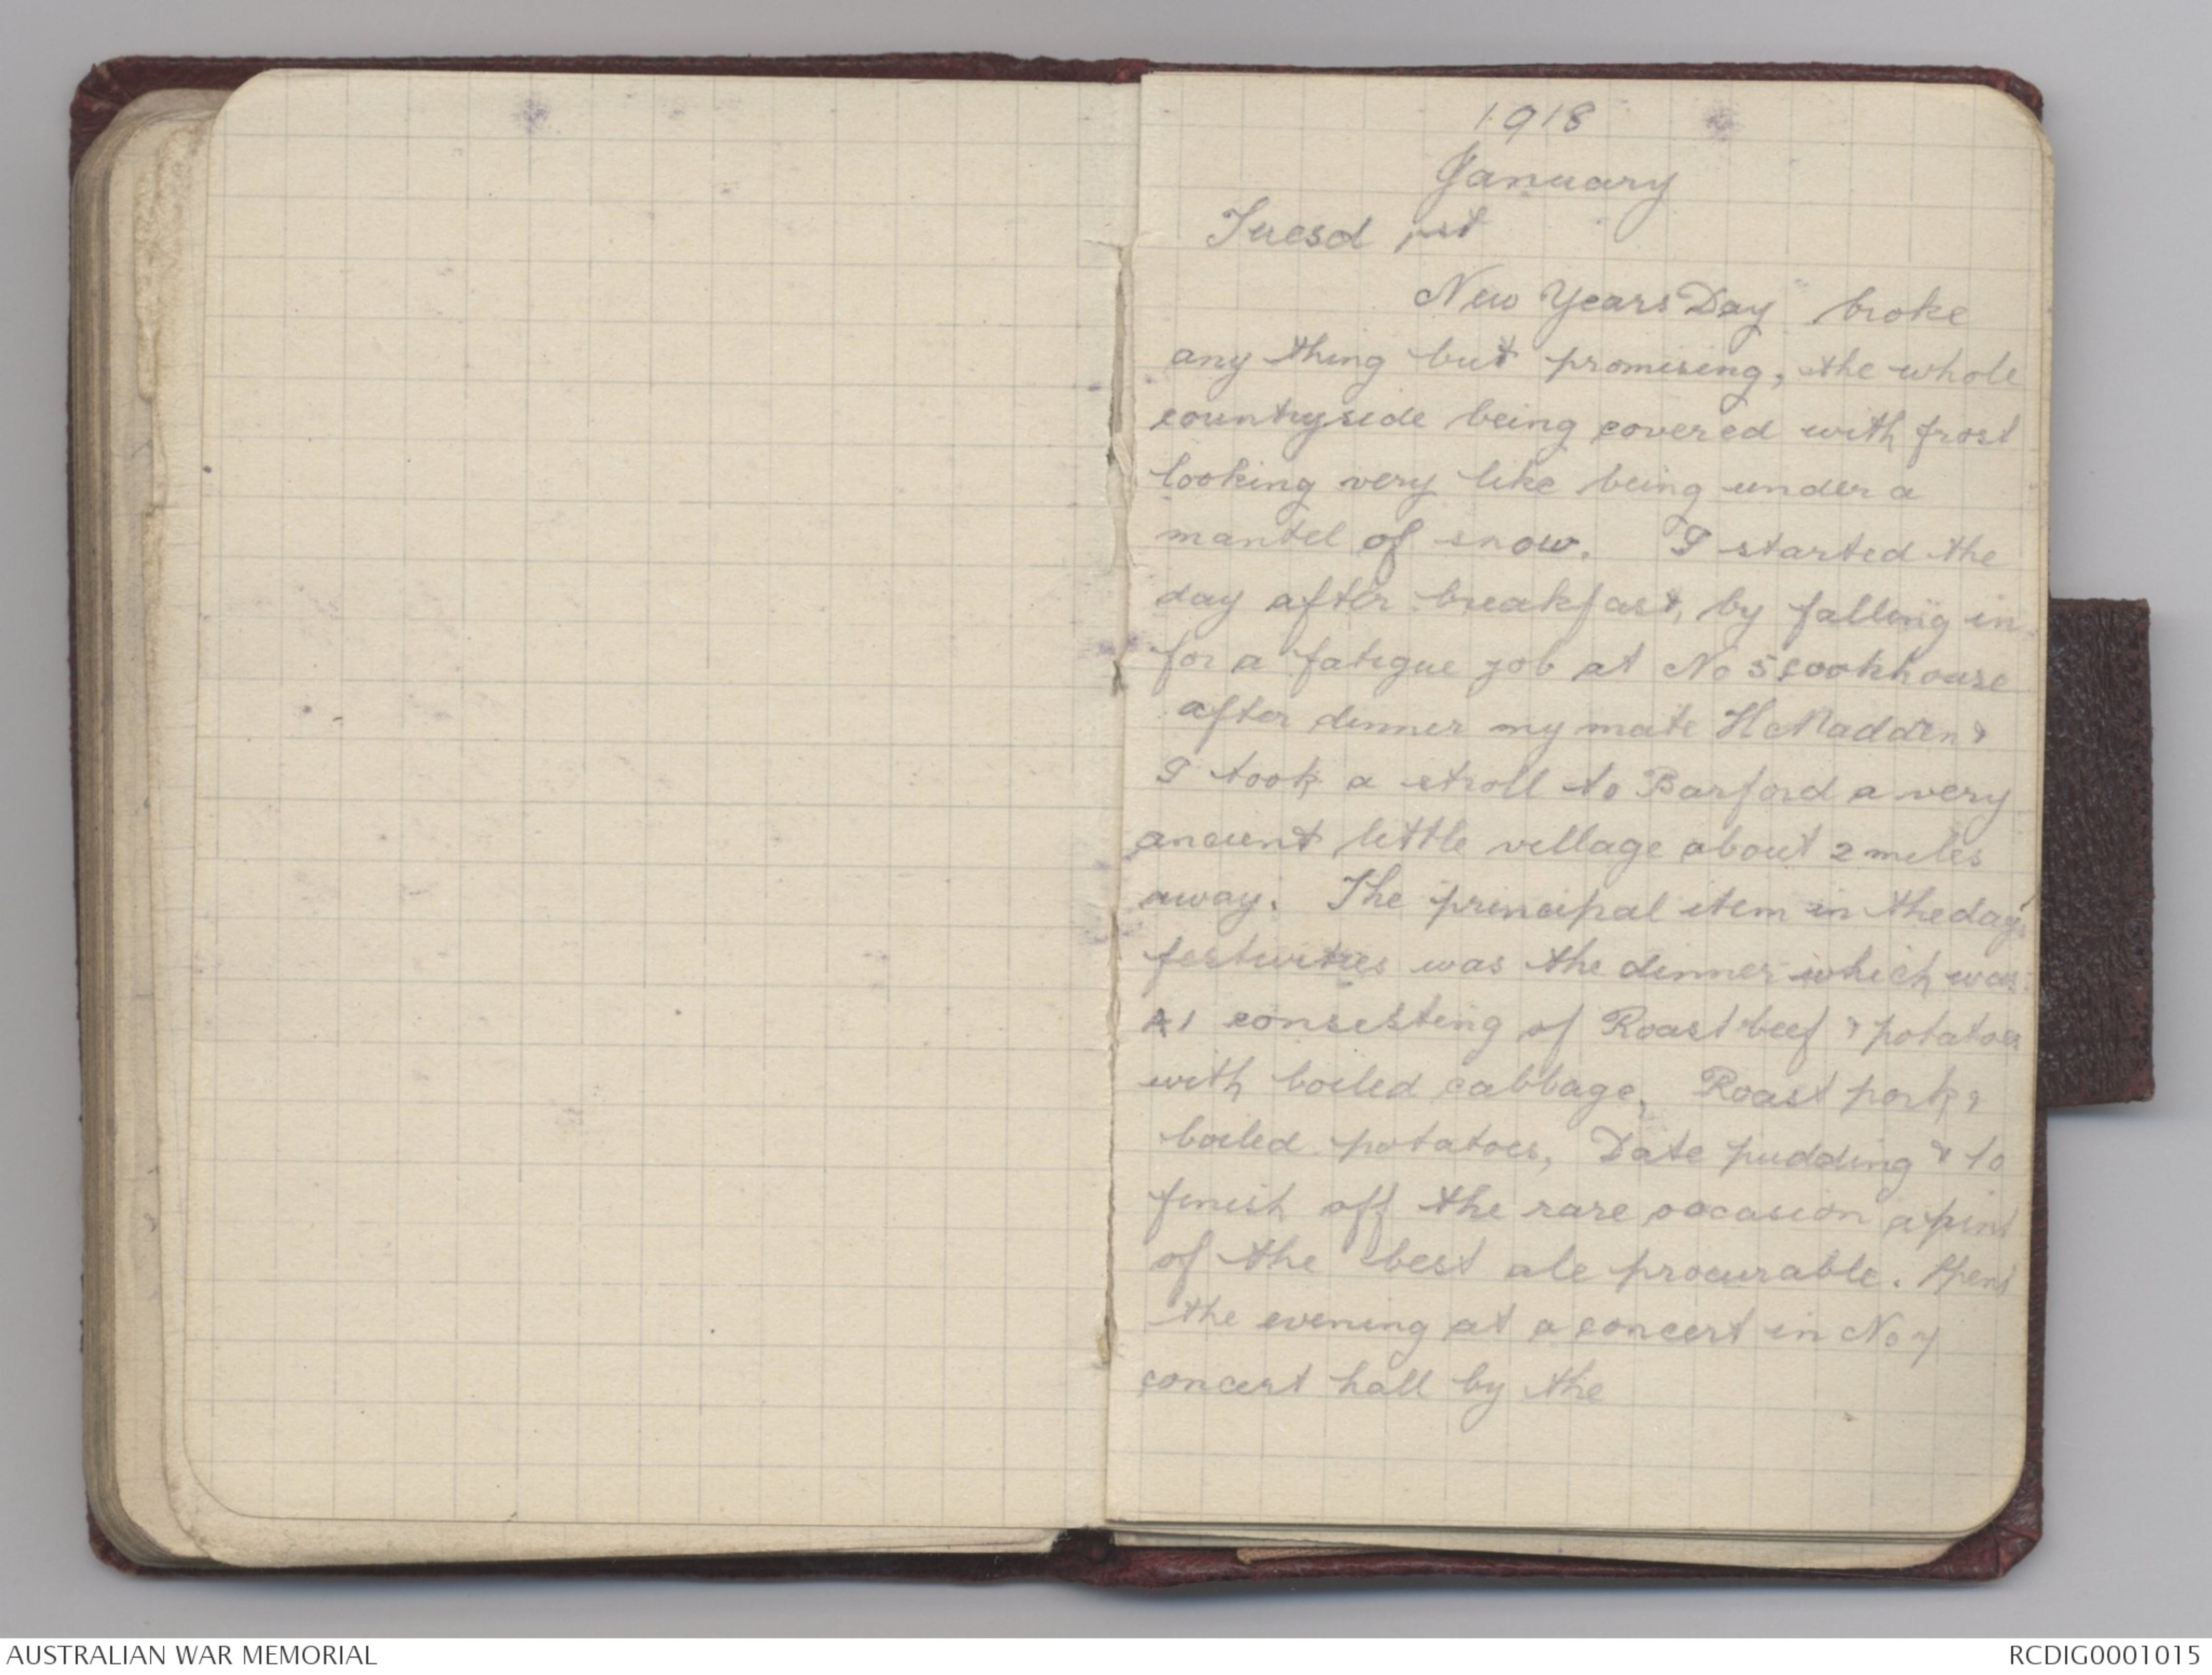 1918
January
Tuesd 1st
New Years Day broke
any thing but promising, the whole
countryside being covered with frost
looking very like being under a
mantel of snow. I started the
day after breakfast, by falling in
for a fatigue job at No 5 cookhouse
after dinner my mate H Madden &
I took a stroll to Barford a very
ancient little village about 2 miles
away. The principal item in the days
festivities was the dinner which was
A1 consisting of Roast beef & potatoes
with boiled cabbage, Roast pork &
boiled potatoes, Date pudding & to
finish off the rare occasion a pint
of the best ale procurable. Spent
the evening at a concert in No 7
concert hall by the
AUSTRALIAN WAR MEMORIAL
RCDIG0001015